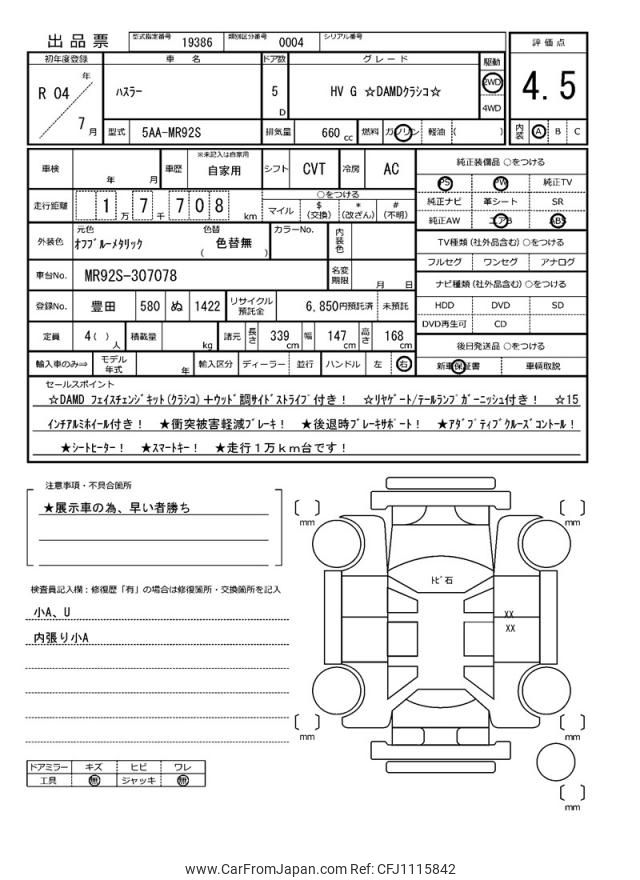 出品票 型式指定番号 19386 類別区分番号 0004 シリアル番号
初年度登録 車名 ドア数 グレード 駆動 評価点
R 04 年 7 月 ハスラー 5 D HV G ☆DAMDクラシコ☆ 2WD 4WD 4.5
型式 5AA-MR92S 排気量 660 cc 燃料 ガソリン 軽油 ( ) 内装 A B C
車検 年 月 車歴 ※未記入は自家用 自家用 シフト CVT 冷房 AC 純正装備品 ○をつける
PS PW 純正TV
走行距離 1 万 7 千 7 0 8 km ○をつける 純正ナビ 革シート SR
マイル $(交換) *(改ざん) #(不明) 純正AW エアB ABS
外装色 元色 オフブルーメタリック 色替 ( 色替無 ) カラーNo. 内装色 TV種類 (社外品含む) ○をつける
フルセグ ワンセグ アナログ
車台No. MR92S-307078 名変期限 月 日 ナビ種類 (社外品含む) ○をつける
登録No. 豊田 580 ぬ 1422 リサイクル預託金 6,850円預託済 未預託 HDD DVD SD
DVD再生可 CD
定員 4( ) 人 積載量 kg 諸元 長さ 339 cm 幅 147 cm 高さ 168 cm 後日発送品 ○をつける
輸入車のみ⇒ モデル年式 年 輸入区分 ディーラー 並行 ハンドル 左 右 新車保証書 車輌取説
セールスポイント
☆DAMD フェイスチェンジキット(クラシコ)+ウッド調サイドストライプ付き! ☆リヤゲート/テールランプガーニッシュ付き! ☆15
インチアルミホイール付き! ★衝突被害軽減ブレーキ! ★後退時ブレーキサポート! ★アダプティブクルーズコントロール!
★シートヒーター! ★スマートキー! ★走行1万km台です!
注意事項・不具合箇所
★展示車の為、早い者勝ち
mm
mm
検査員記入欄:修復歴「有」の場合は修復箇所・交換箇所を記入
小A、U
内張り小A
トビ石
XX
XX
mm
mm
mm
ドアミラー キズ ヒビ ワレ
工具 無 ジャッキ 無
www.CarFromJapan.com Ref: CFJ1115842